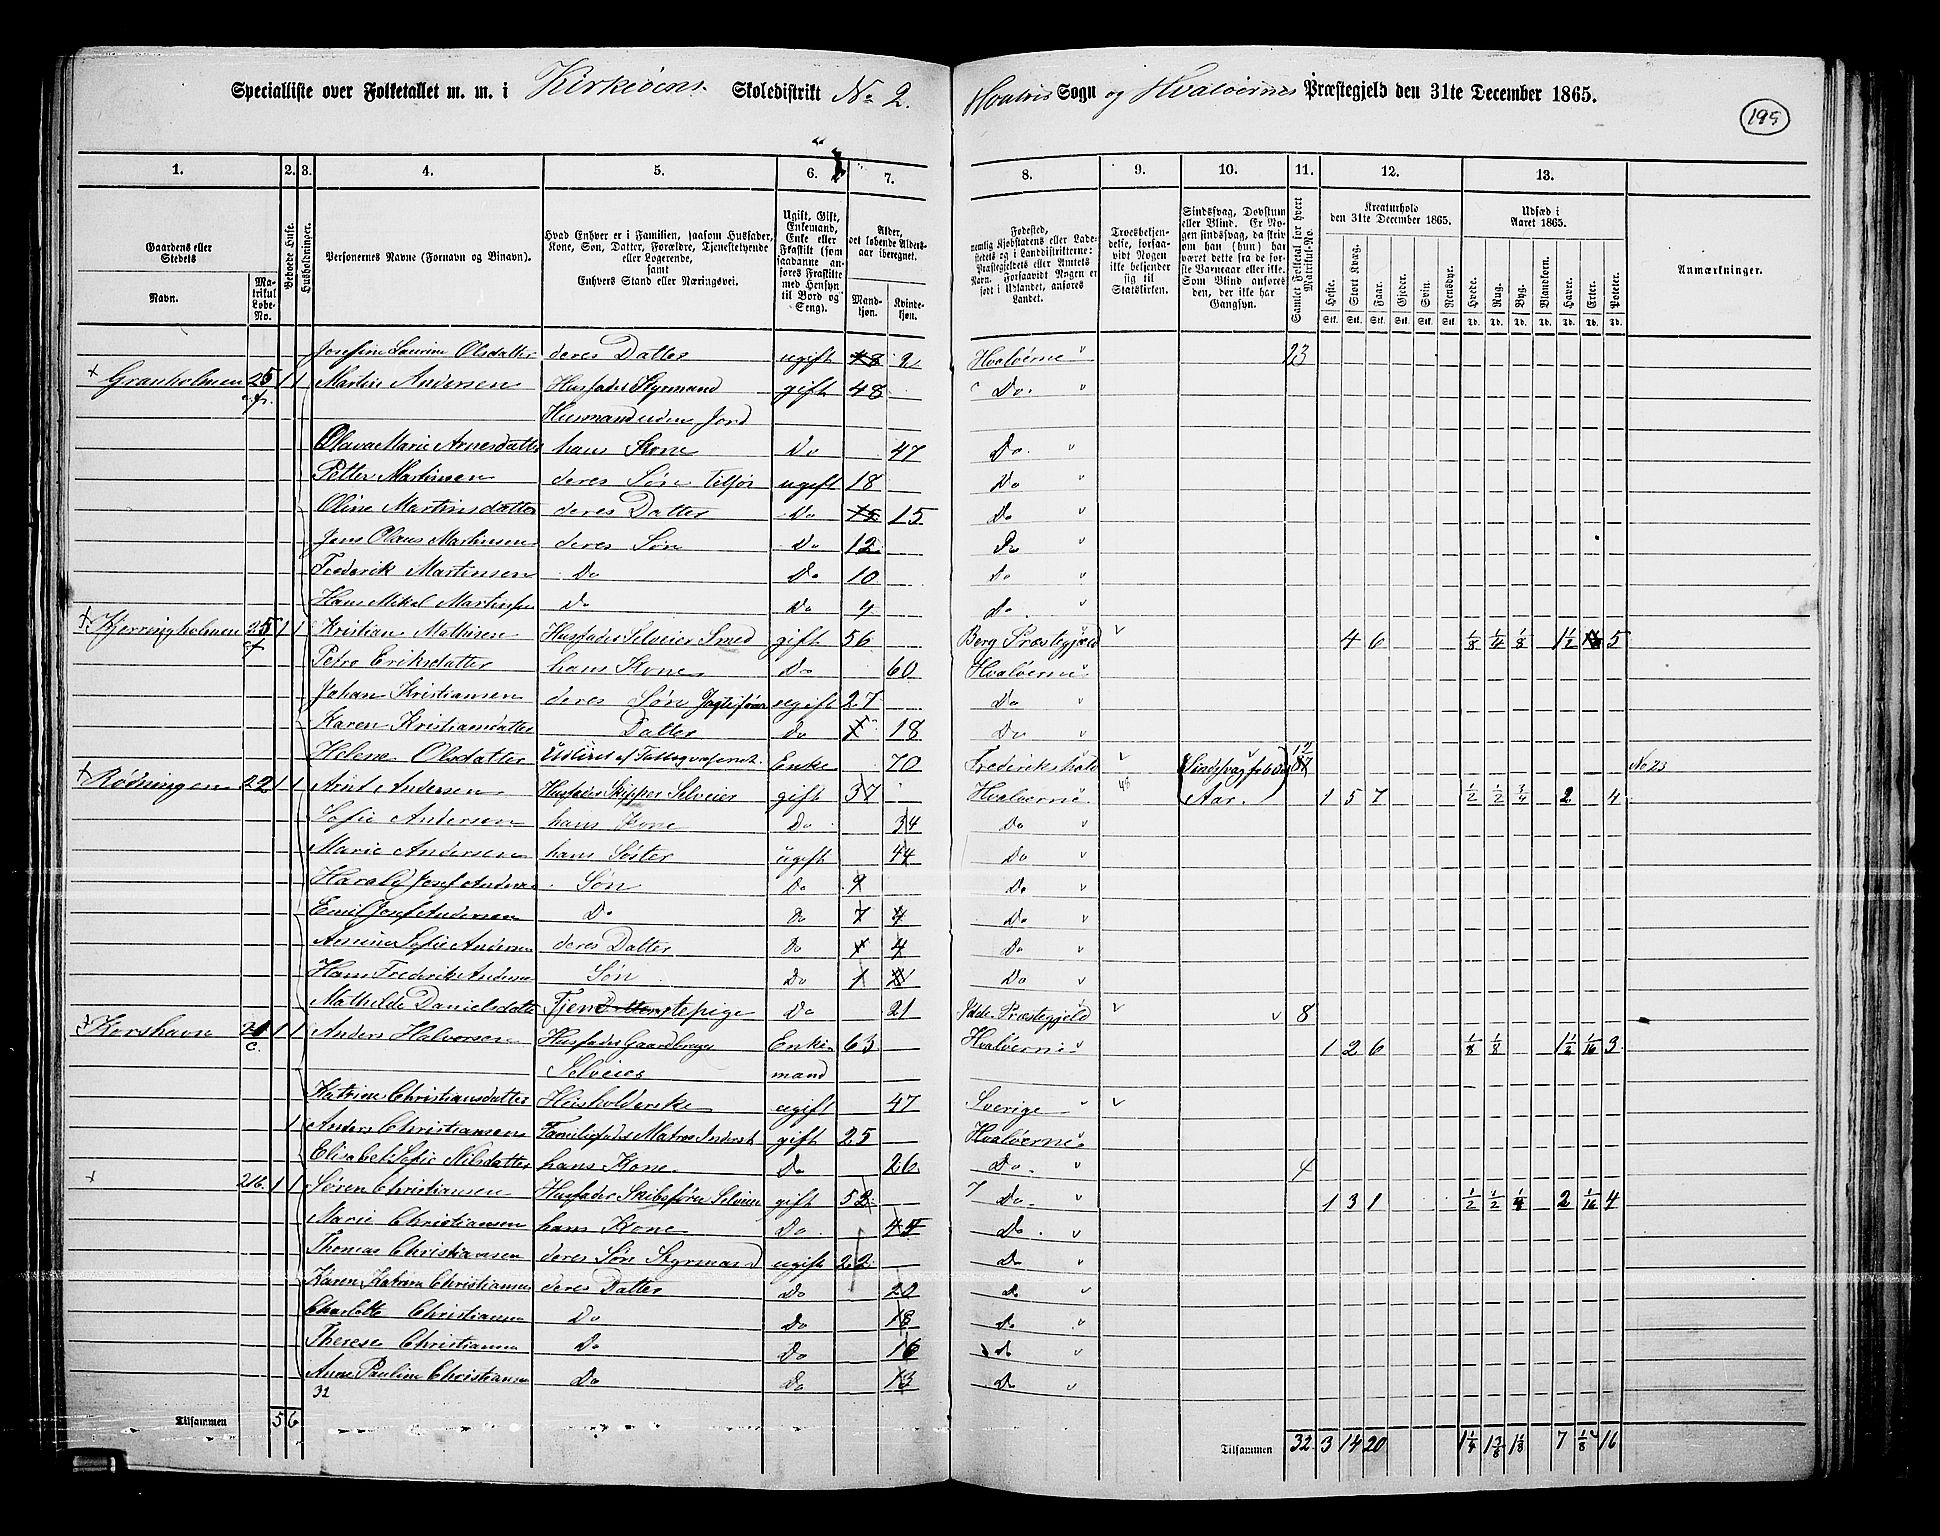 Specialliste over Folketallet m. m. i Kirkeöens Skoledistrikt No 2. Hvaløs Sogn og Hvaløernes Præstegjeld den 31te December 1865.
195
1. 2. 3. 4. 5. 6. 7. 8. 9. 10. 11. 12. 13.
Gaardens eller Stedets
Navn.
Matrikul Løbe-No.
Beboede Huse.
Husholdninger.
Personernes Navne (Fornavn og Binavn).
Hvad Enhver er i Familien, saasom Husfader, Kone, Søn, Datter, Forældre, Tjenestetyende eller Logerende, samt Enhvers Stand eller Næringsvei.
Ugift, Gift, Enkemand, Enke eller Fraskilt (som saadanne anføres Fraskilte med Hensyn til Bord og Seng).
Alder, det løbende Aldersaar iberegnet.
Mandkjøn. Kvindekjøn.
Fødested, nemlig Kjøbstadens eller Ladestedets og i Landdistrikterne: Præstegjeldets eller Amtets Navn. Forsaavidt Nogen er født i Udlandet, anføres Landet.
Troesbekjendelse, forsaavidt Nogen ikke bekjender sig til Statskirken.
Sindssvag, Døvstum eller Blind. Er Nogen sindssvag, da skriv om han (hun) har været dette fra de første Barneaar eller ikke. Som Blind anføres den, der ikke har Gangsyn.
Samlet Folketal for hvert Matrikul-No.
Kreaturhold den 31te December 1865.
Heste. Stort Kvæg. Faar. Gjeder. Svin. Rensdyr.
Stk. Stk. Stk. Stk. Stk. Stk.
Udsæd i Aaret 1865.
Hvede. Rug. Byg. Blandkorn. Havre. Erter. Poteter.
Td. Td. Td. Td. Td. Td. Td.
Anmærkninger.
Josefine Laurine Olsdatter deres Datter ugift 2 Hvaløerne 23
Granholmen 25 1 1 Martin Andersen Husfader Styrmand gift 48 Do.
Husmand uden Jord
Olava Marie Arnesdatter hans Kone Do 47 Do.
Petter Martinsen deres Søn ugift 18 Do
Oline Martinsdatter deres Datter Do 15 Do
Jens Olaus Martinsen deres Søn Do 12 Do
Frederik Martinsen Do Do 10 Do
Hans Mikal Martinsen Do Do 4 Do.
Kjerringholmen 25 1 1 Kristian Mathisen Husfader Selveier Smed gift 56 Berg Præstegjeld 4 6 1/8 1/4 1/8 1 1/2 5
Petra Eriksdatter hans Kone Do 60 Hvaløerne
Johan Kristiansen deres Søn ugift 27 Do
Karen Kristiansdatter Datter do 18 Do
Helene Olsdatter Enke 70 Frederikshald Sindssvag 12 No 25
Rødningen 22 1 1 Arnt Andersen Husfader Skipper Selveier gift 37 Hvaløerne Aar. 1 5 7 1/2 1/2 3/4 2 4
Sofie Andersen hans Kone Do 34 Do
Marie Andersen hans Søster ugift 44 Do
Harald Josef Andersen Søn Do 9 Do
Emil Josef Andersen Do Do 7 Do
Sofie Andersen deres Datter Do 4 Do
Hans Frederik Andersen Søn Do 1 Do
Mathilde Danielsdatter Tjenestepige Do 21 Idde Præstegjeld 8
Korshavn 21 c. 1 1 Anders Halvorsen Husfader Gaardbruger Enke 63 Hvaløerne 1 2 6 1/8 1/8 1 1/2 1/16 3
Selveier mand
Katrine Christiansdatter Huusholderske ugift 47 Sverige
1 Anders Christiansen Familiefader Matros Inderst gift 25 Hvaløerne
Elisabet Sofie Nilsdatter hans Kone Do 26 Do. 4
21b. 1 1 Søren Christiansen Husfader Skibsfører Selveier gift 52 Do. 1 3 1 1/2 1/2 1/4 2 1/16 4
Marie Christiansen hans Kone Do. 44 Do.
Thomas Christiansen deres Søn Styrmand ugift 22 Do
Karen Katrine Christiansen deres Datter Do 20 Do
Charlotte Christiansen Do Do 18 Do
Therese Christiansen Do Do 16 do
Anne Pauline Christiansen Do Do 13 Do
32
Tilsammen 5 6
Tilsammen 32 3 14 20 1 1/4 1 3/8 1 1/8 7 1/8 16